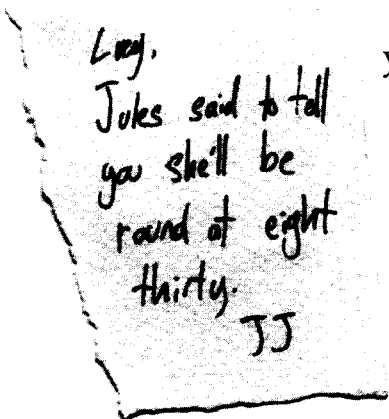 Lucy,
Jules said to tell
you she'll be
round at eight
thirty.
JJ